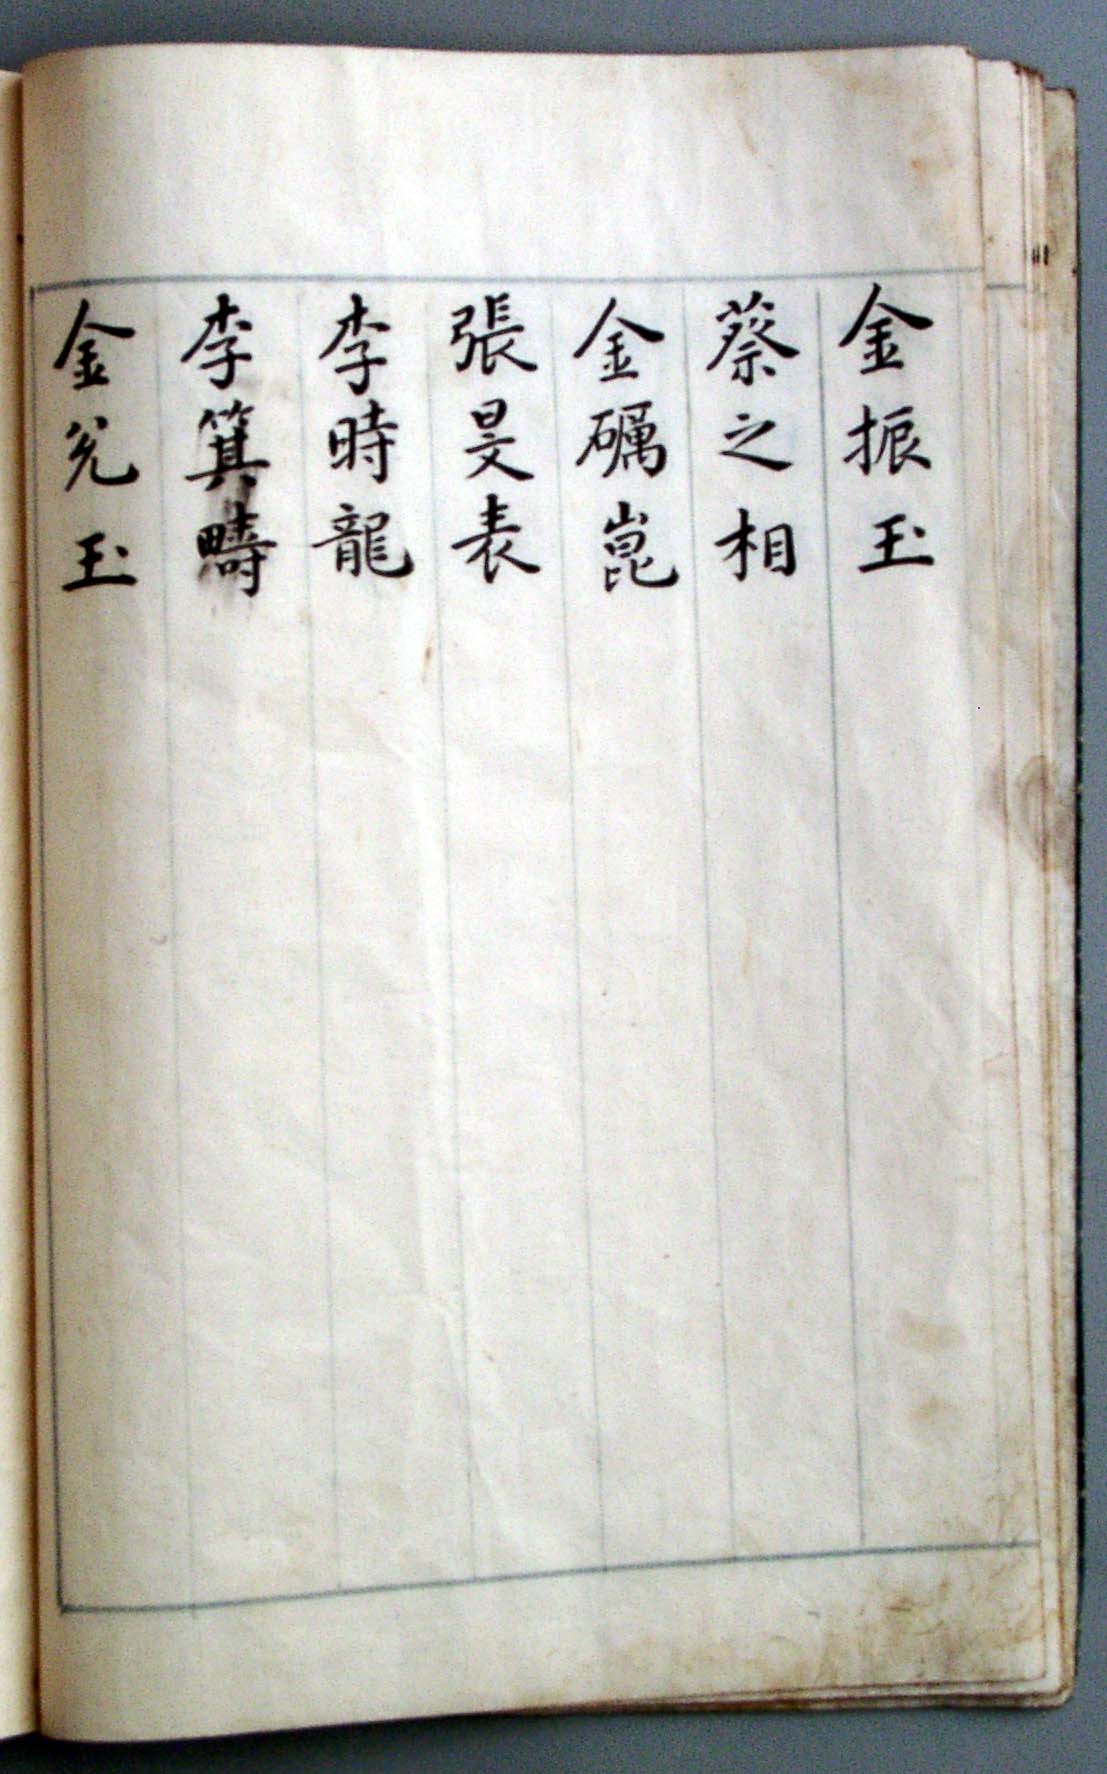 金振玉
蔡之相
金礪崑
張旻表
李時龍
李箕疇
金兌玉